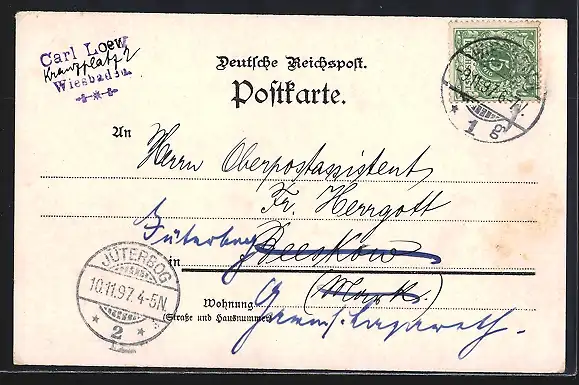 Carl Loew
Kranzplatz 2
Wiesbaden
Deutsche Reichspost.
Postkarte.
An
Herrn Oberpostassistent
Fr. Herrgott
Jüterbog
Beeskow
in
(Mark.)
Wohnung
(Straße und Hausnummer)
Garnis. Lazareth.
JÜTERBOG
10.11.97. 4-5N.
* 2 *
.11.97.
* 1 g